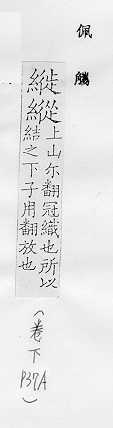 佩觿
縰縱上山尒翻冠織也所以
結之下子用翻放也
(卷下
P37A)